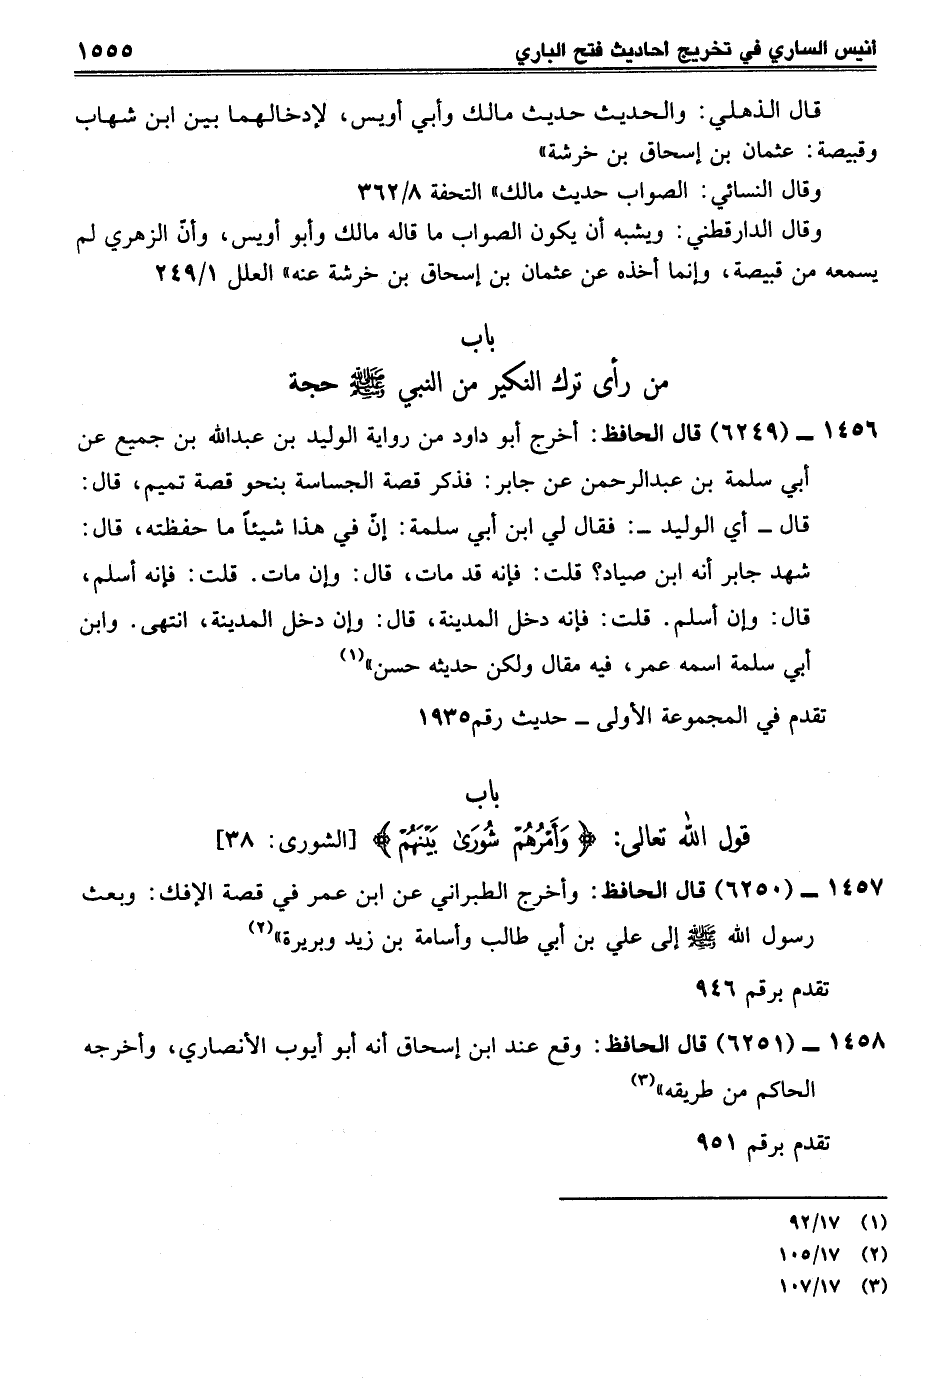 أنيس الساري في تخريج أحاديث فتح الباري ١٥٥٥
قال الذهلي: والحديث حديث مالك وأبي أويس، لإدخالهما بين ابن شهاب
وقبيصة: عثمان بن إسحاق بن خرشة»
وقال النسائي: الصواب حديث مالك» التحفة ٣٦٢/٨
وقال الدارقطني: ويشبه أن يكون الصواب ما قاله مالك وأبو أويس، وأنّ الزهري لم
يسمعه من قبيصة، وإنما أخذه عن عثمان بن إسحاق بن خرشة عنه» العلل ٢٤٩/١
باب
من رأى ترك النكير من النبي ﷺ حجة
١٤٥٦ ــ (٦٢٤٩) قال الحافظ: أخرج أبو داود من رواية الوليد بن عبدالله بن جميع عن
أبي سلمة بن عبدالرحمن عن جابر: فذكر قصة الجساسة بنحو قصة تميم، قال:
قال ــ أي الوليد ــ: فقال لي ابن أبي سلمة: إنّ في هذا شيئاً ما حفظته، قال:
شهد جابر أنه ابن صياد؟ قلت: فإنه قد مات، قال: وإن مات. قلت: فإنه أسلم،
قال: وإن أسلم. قلت: فإنه دخل المدينة، قال: وإن دخل المدينة، انتهى. وابن
أبي سلمة اسمه عمر، فيه مقال ولكن حديثه حسن»(١)
تقدم في المجموعة الأولى ــ حديث رقم١٩٣٥
باب
قول الله تعالى: ﴿وَأَمْرُهُمْ شُورَىٰ بَيْنَهُمْ﴾ [الشورى: ٣٨]
١٤٥٧ ــ (٦٢٥٠) قال الحافظ: وأخرج الطبراني عن ابن عمر في قصة الإفك: وبعث
رسول الله ﷺ إلى علي بن أبي طالب وأسامة بن زيد وبريرة»(٢)
تقدم برقم ٩٤٦
١٤٥٨ ــ (٦٢٥١) قال الحافظ: وقع عند ابن إسحاق أنه أبو أيوب الأنصاري، وأخرجه
الحاكم من طريقه»(٣)
تقدم برقم ٩٥١
(١) ٩٢/١٧
(٢) ١٠٥/١٧
(٣) ١٠٧/١٧